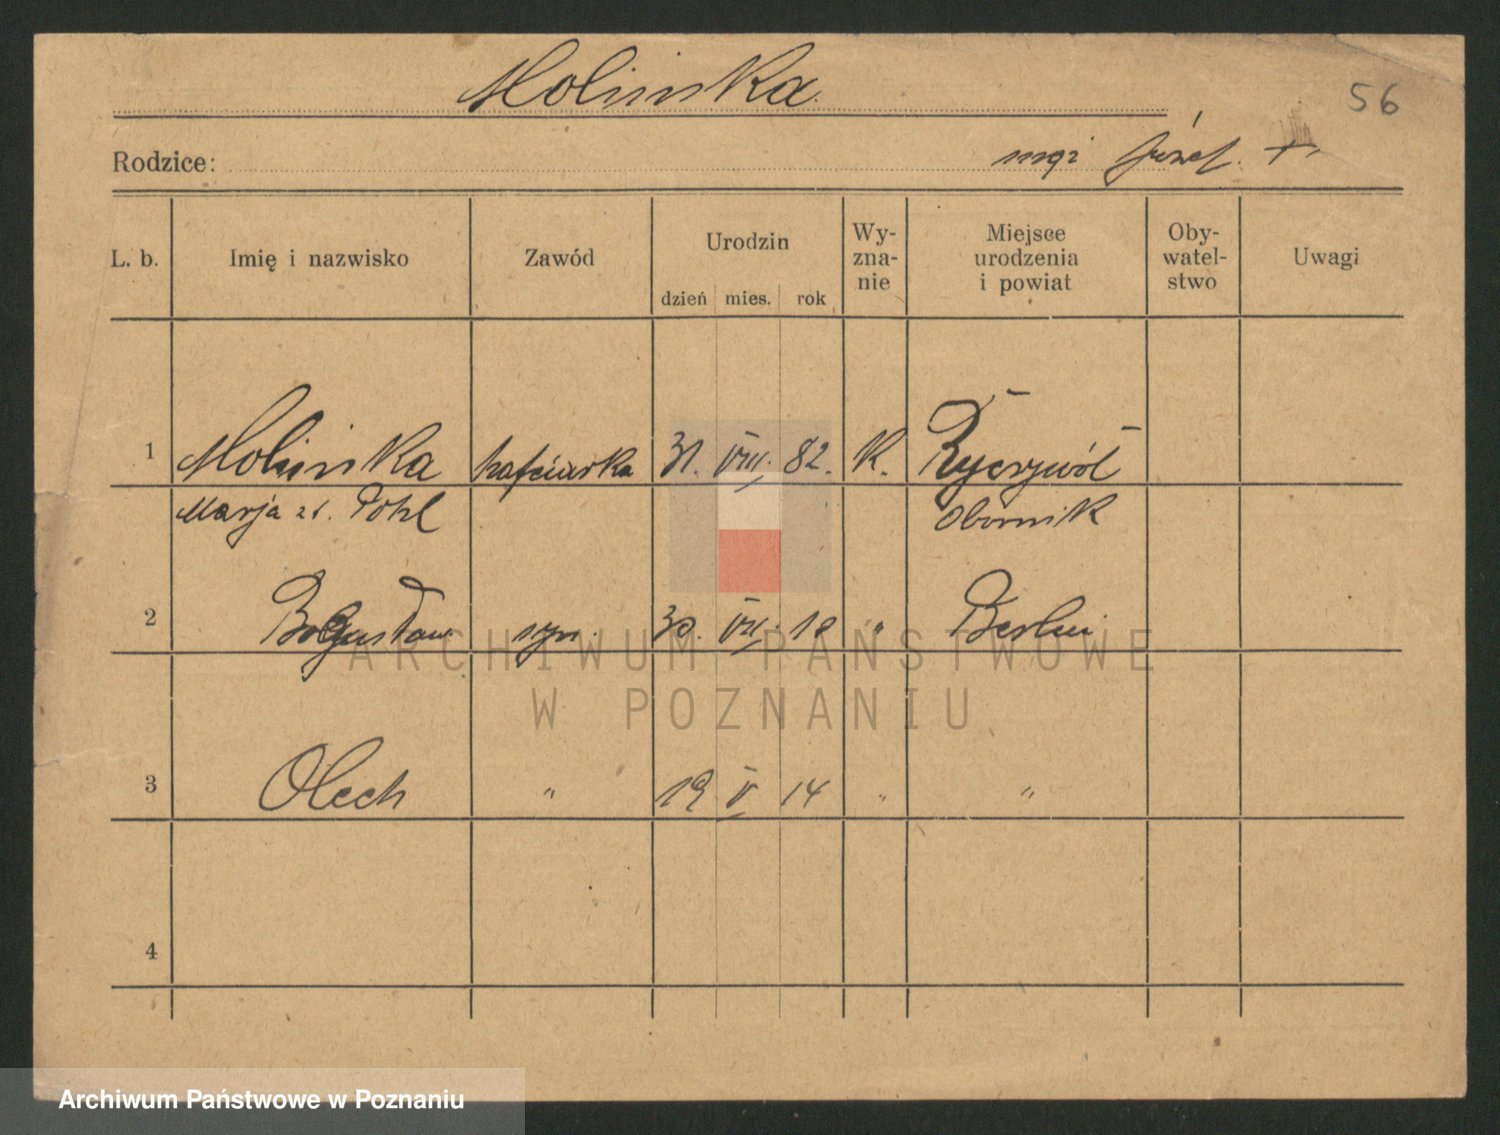 Molinska
56
Rodzice: mąż Józef. +
L. b. Imię i nazwisko Zawód Urodzin dzień mies. rok Wy-zna-nie Miejsce urodzenia i powiat Oby-watel-stwo Uwagi
1 Molinska hafciarka 31. VIII. 82. K. Ryczywół
Marja z d. Pohl Obornik
2 Bogusław syn. 30. VII. 18 " Berlin
3 Olech " 19 V 14 " "
4
ARCHIWUM PAŃSTWOWE
W POZNANIU
Archiwum Państwowe w Poznaniu